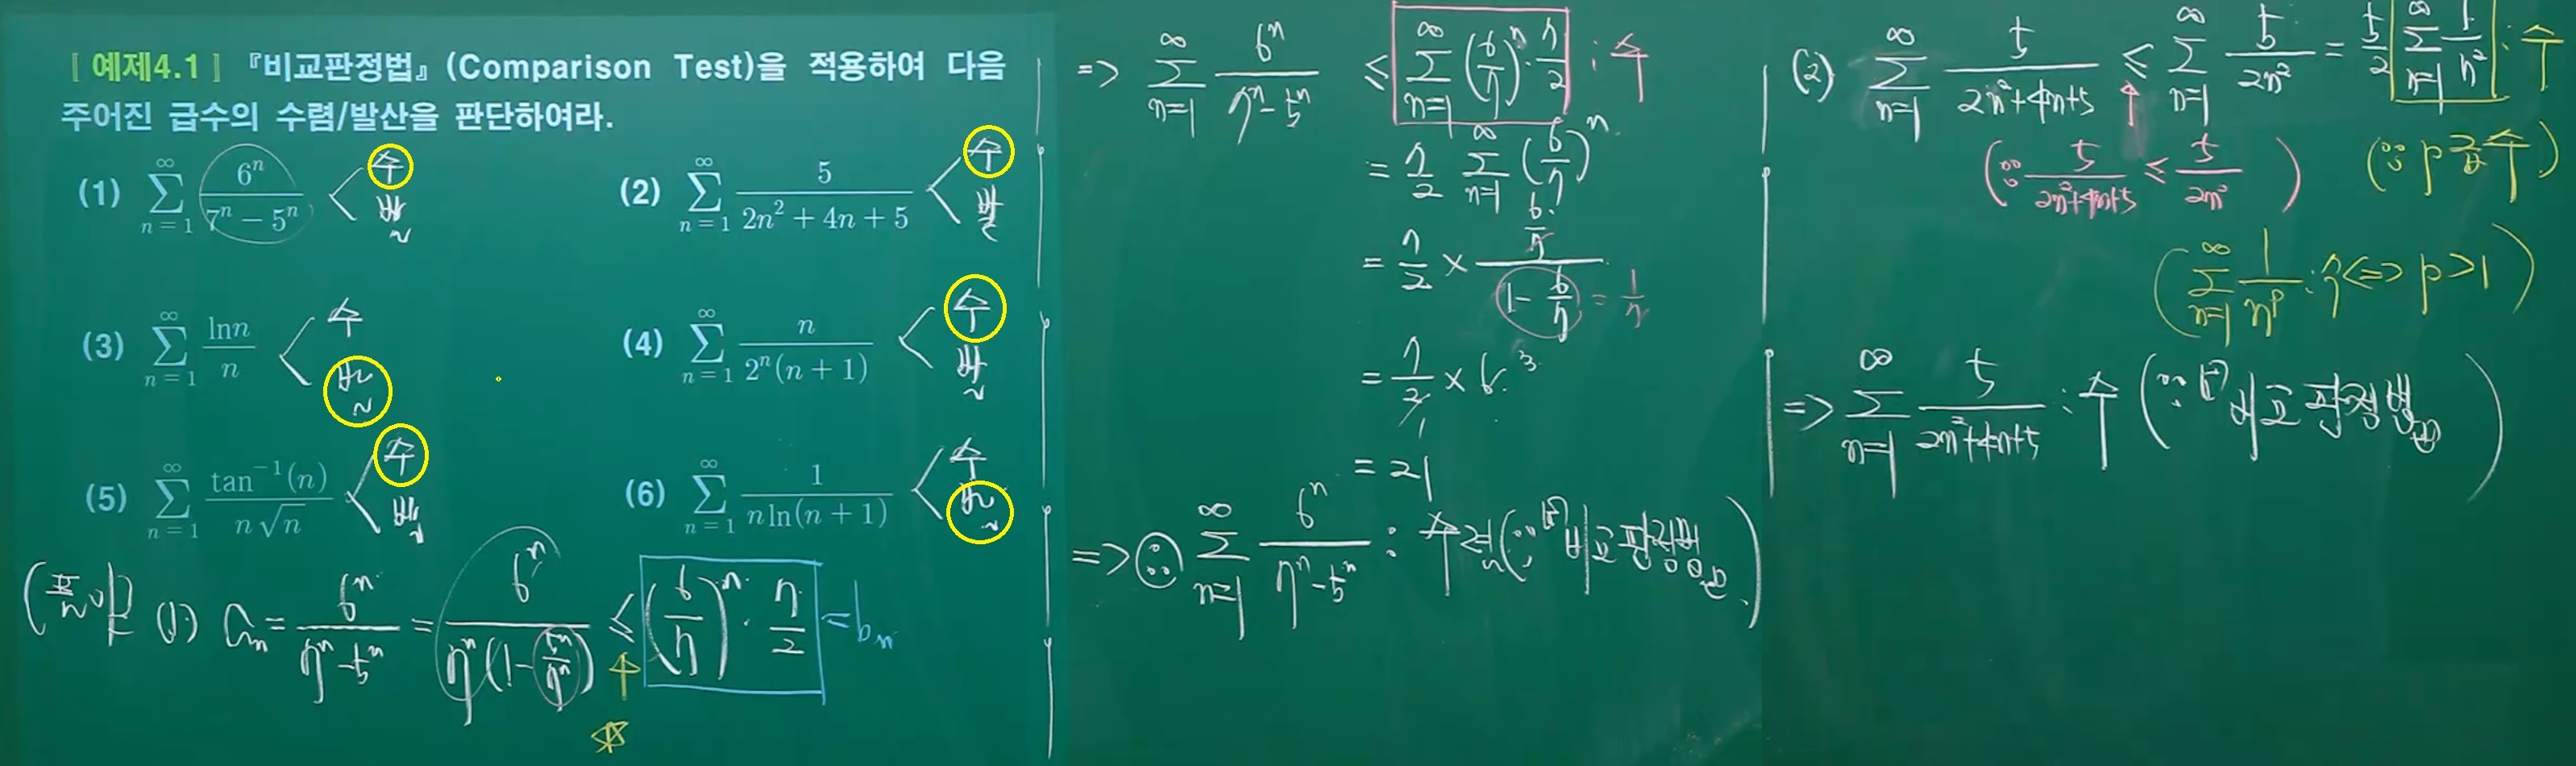 [예제4.1] 『비교판정법』(Comparison Test)을 적용하여 다음
주어진 급수의 수렴/발산을 판단하여라.
(1) ∑_{n=1}^{∞} 6^n/(7^n − 5^n) < 수 발
(2) ∑_{n=1}^{∞} 5/(2n^2 + 4n + 5) < 수 발
(3) ∑_{n=1}^{∞} ln n/n < 수 발
(4) ∑_{n=1}^{∞} n/(2^n(n + 1)) < 수 발
(5) ∑_{n=1}^{∞} tan^{−1}(n)/(n√n) < 수 발
(6) ∑_{n=1}^{∞} 1/(n ln(n + 1)) < 수 발
(풀이) (1) a_n = 6^n/(7^n − 5^n) = 6^n/(7^n(1 − 5^n/7^n)) ≤ (6/7)^n · 7/2 = b_n
=> ∑_{n=1}^{∞} 6^n/(7^n − 5^n) ≤ ∑_{n=1}^{∞} (6/7)^n · 7/2 : 수
= 7/2 ∑_{n=1}^{∞} (6/7)^n
= 7/2 × (6/7)/(1 − 6/7) = 1/7
= 7/2 × 6 3
= 21
=> ∴ ∑_{n=1}^{∞} 6^n/(7^n − 5^n) : 수렴 (∵ 비교판정법
(2) ∑_{n=1}^{∞} 5/(2n^2+4n+5) ≤ ∑_{n=1}^{∞} 5/(2n^2) = 5/2 ∑_{n=1}^{∞} 1/n^2 : 수
(∵ 5/(2n^2+4n+5) ≤ 5/(2n^2)) (∵ p급수)
(∑_{n=1}^{∞} 1/n^p : 수 <=> p>1)
=> ∑_{n=1}^{∞} 5/(2n^2+4n+5) : 수 (∵ 비교판정법